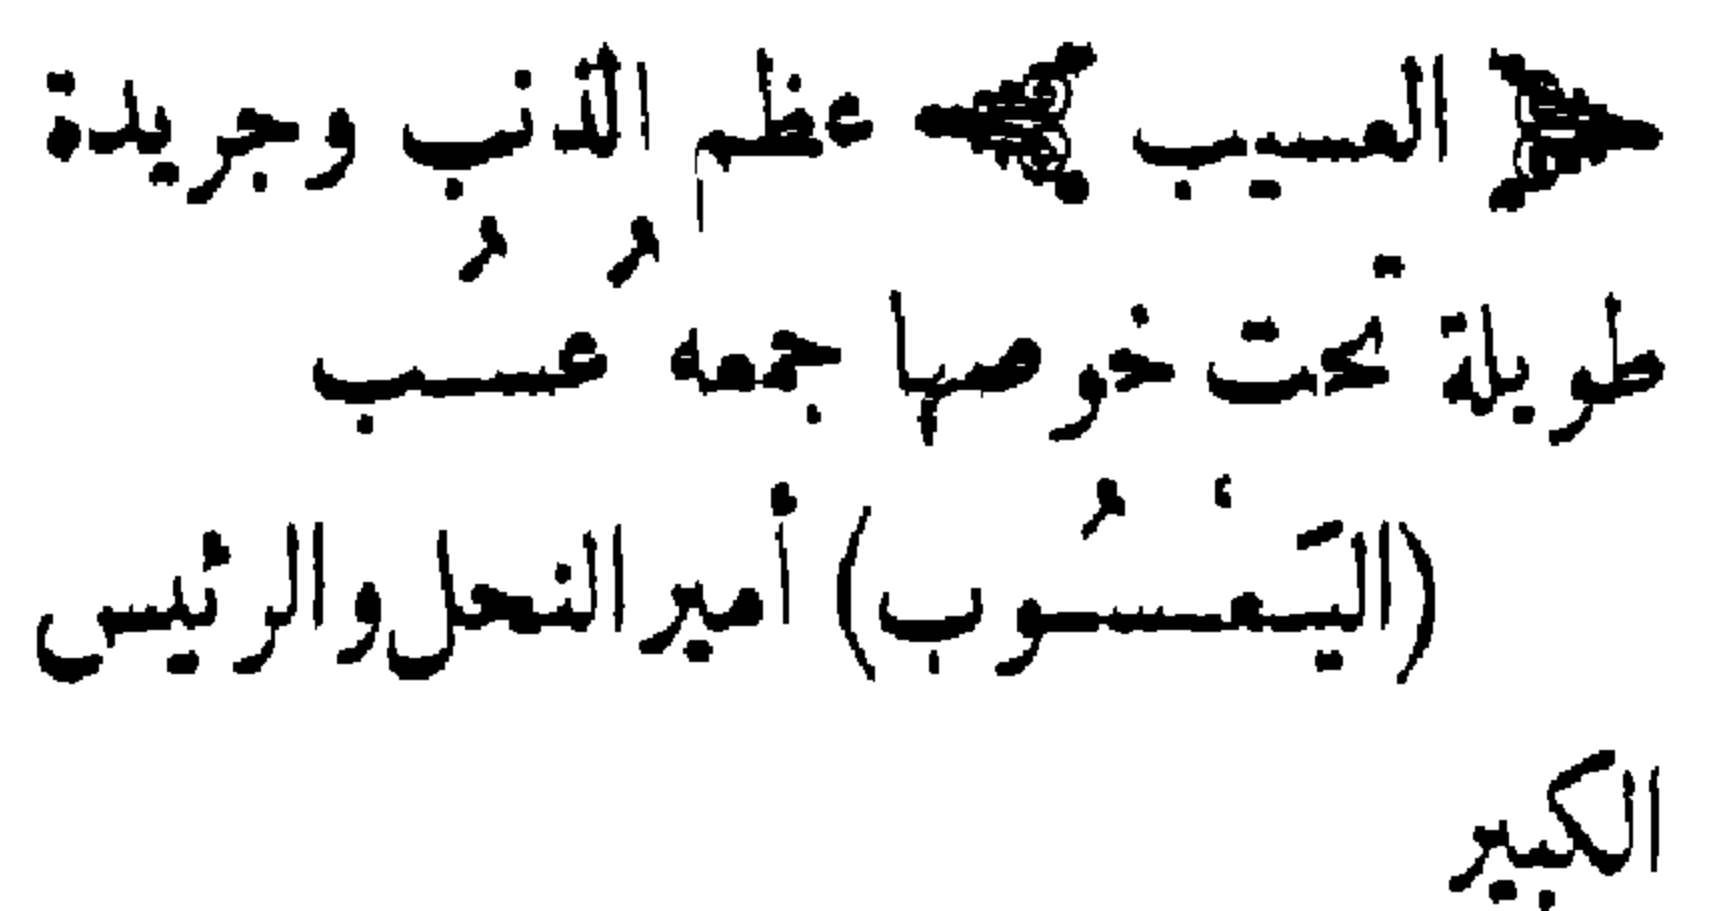 ﴿ العسيب ﴾ عظم الذنب وجريدة
طويلة تحت خوصها جمعه عُسُب
(اليَعْسُوب) أمير النحل والرئيس
الكبير